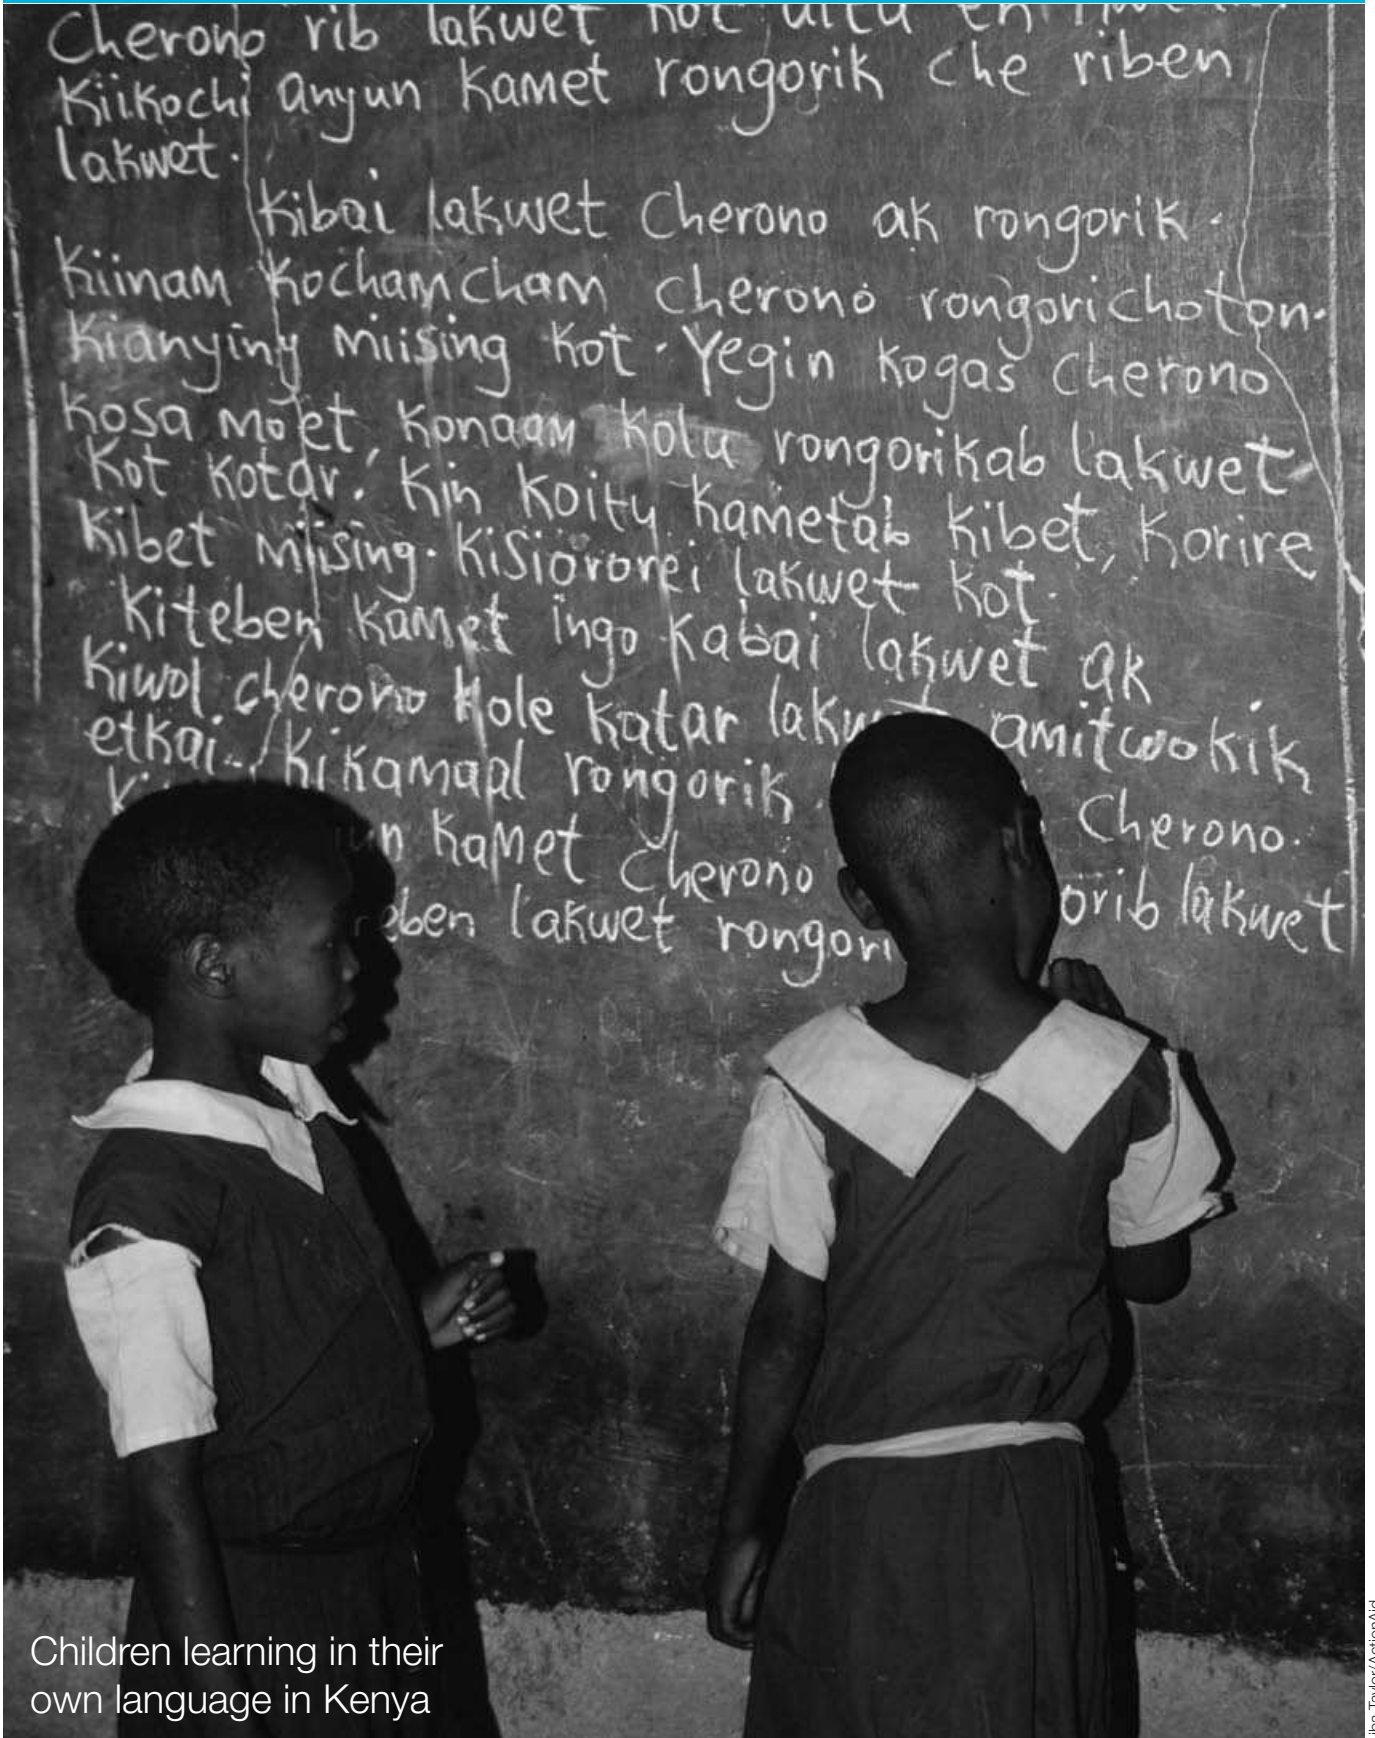 Cherono rib lakwet
Kiikochi anyun kamet rongorik che riben
lakwet.
Kibai lakwet Cherono ak rongorik.
Kiinam kochamcham cherono rongorichoton.
Kianyiny miising kot. Yegin kogas cherono
kosa mo'et, konaam kolu rongorikab lakwet
kot kotar. Kin koity kametab kibet, korire
kibet miising. Kisiororei lakwet kot.
Kiteben kamet ingo kabai lakwet ak
Kiwol cherono kole katar amitwokik
etkai.. Kikamaal rongorik. Cherono.
kamet cherono orib lakwet
lakwet
Children learning in their
own language in Kenya
Taylor/ActionAid